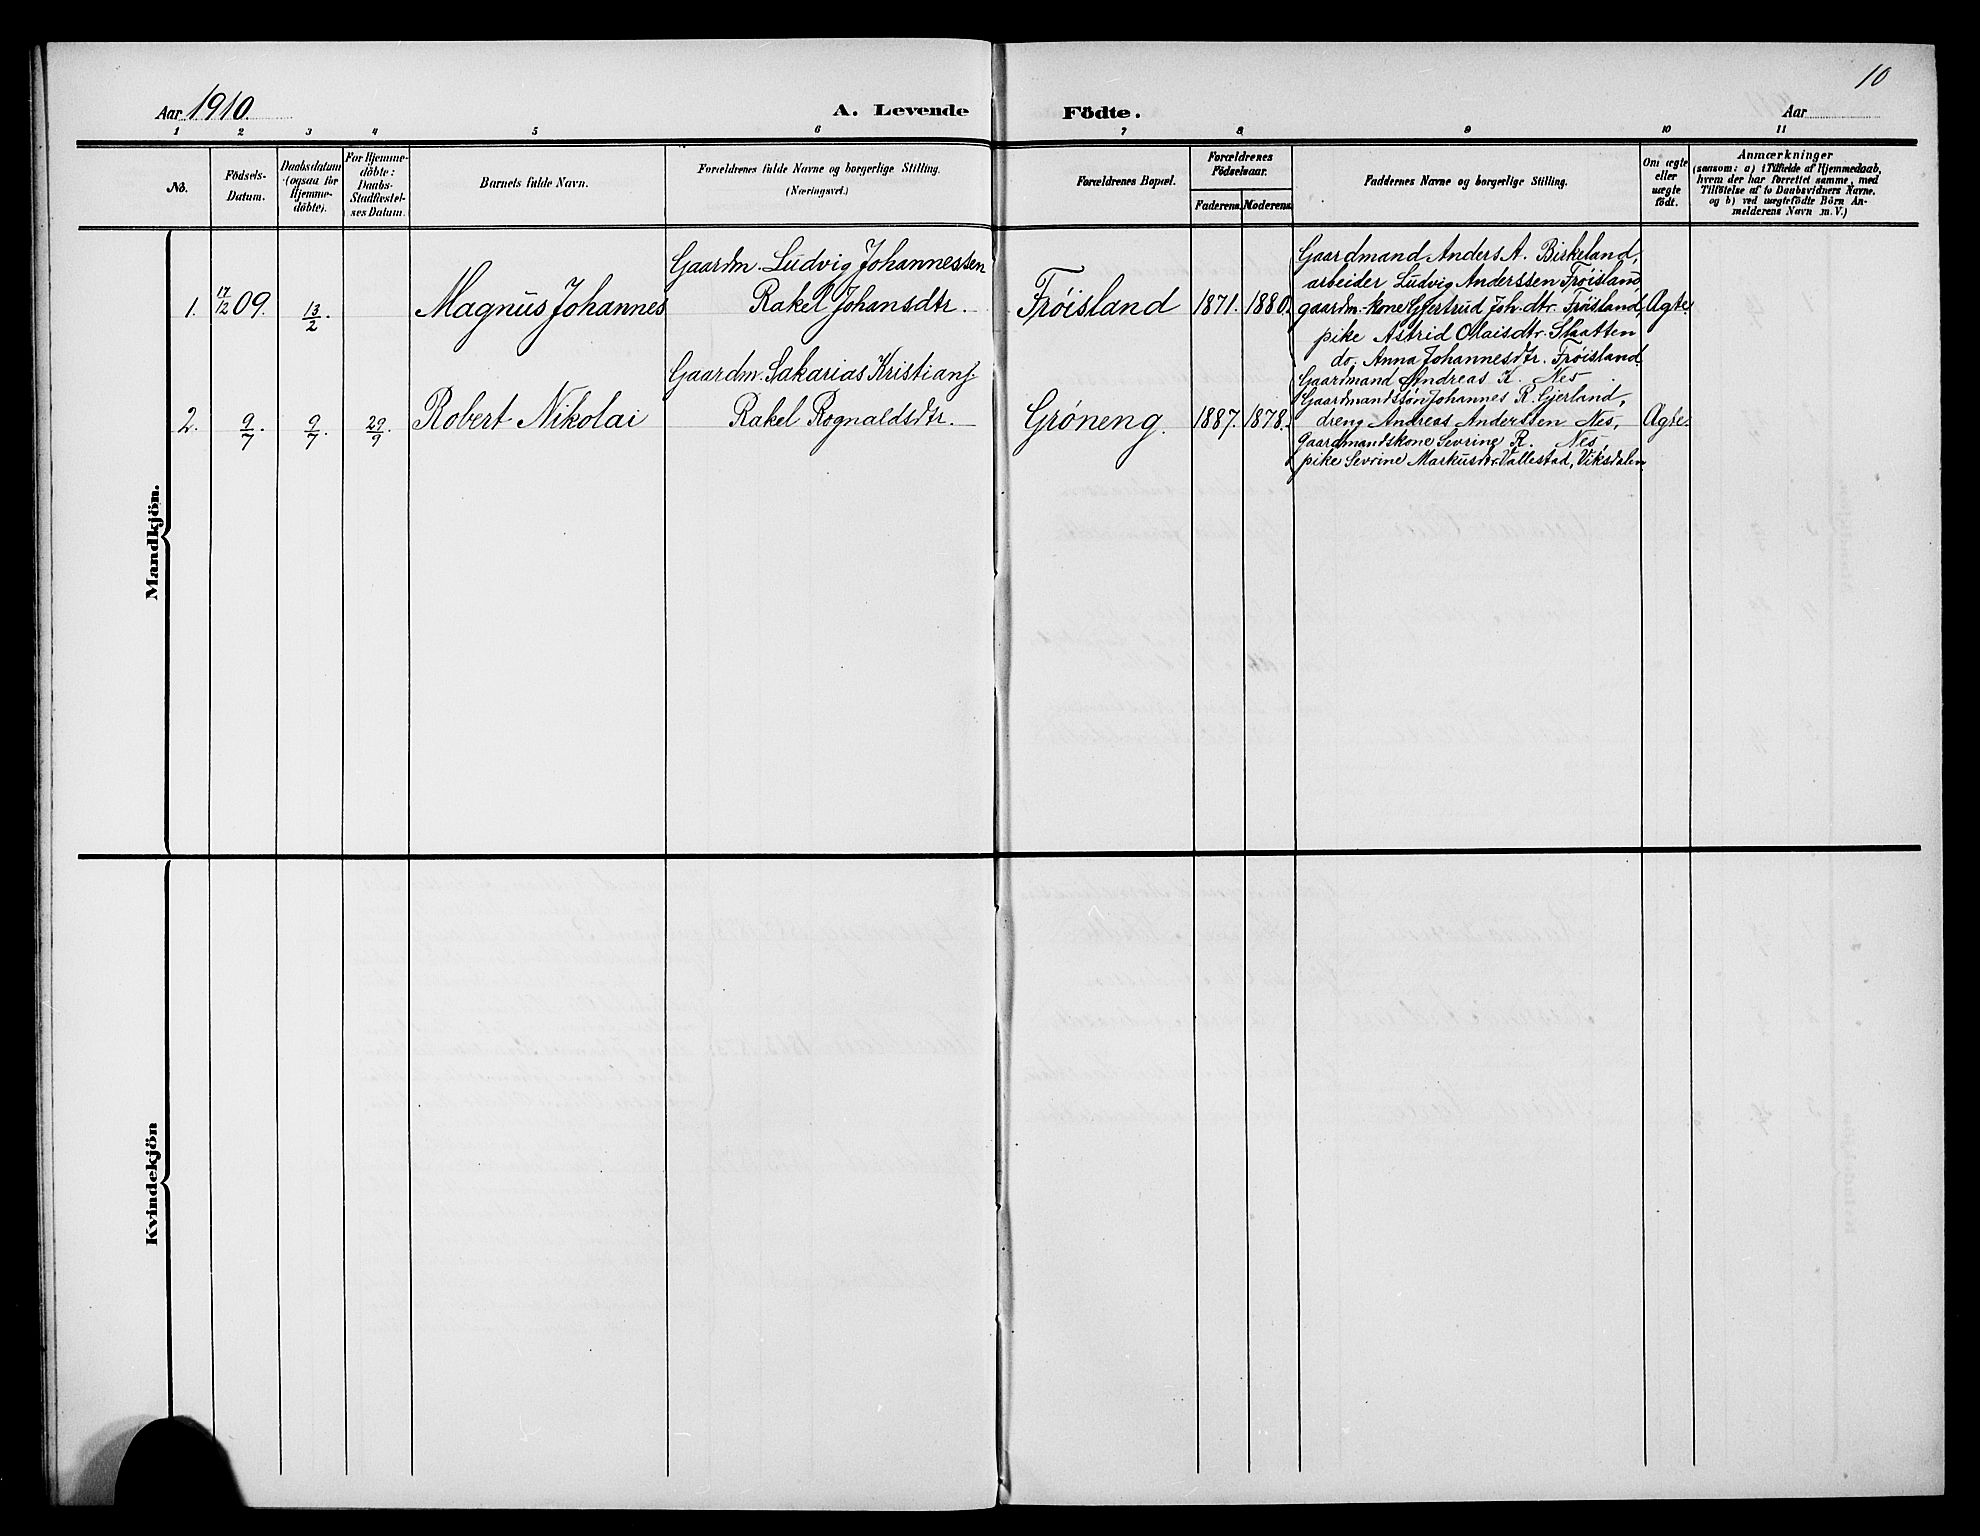 Aar 1910
A. Levende Födte.
Aar
10
1 2 3 4 5 6 7 8 9 10 11
No.
Födsels-
Datum.
Daabsdatum
(ogsaa for
Hjemme-
döbte).
For Hjemme-
döbte:
Daabs-
Stadfæstel-
ses Datum.
Barnets fulde Navn.
Forældrenes fulde Navne og borgerlige Stilling.
(Næringsvei.)
Forældrenes Bopæl.
Forældrenes
Födselsaar.
Faderens. Moderens.
Faddernes Navne og borgerlige Stilling.
Om ægte
eller
uægte
födt.
Anmærkninger
(saasom: a) i Tilfælde af Hjemmedaab,
hvem der har forrettet samme, med
Tilföielse af to Daabsvidners Navne.
og b) ved uægtefödte Börn An-
melderens Navn m. V.)
Mandkjön.
1. 17/12 09. 13/2. Magnus Johannes
Gaardm. Ludvig Johannessen
Rakel Johansdtr.
Frøisland 1871. 1880.
Gaardmand Anders A. Birkeland,
arbeider Ludvig Anderssen Frøisland,
gaardm.-kone Gjertrud Joh.dtr. Frøisland
pike Astrid Olaisdtr. Slaatten
do. Anna Johannesdtr. Frøisland
Ægte.
2. 9/7. 9/7. 29/9. Robert Nikolai
Gaardm. Sakarias Kristians.
Rakel Rognaldsdtr.
Grøneng. 1887. 1878.
Gaardmand Andreas K. Nes
Gaardmandssøn Johannes R. Gjerland,
dreng Andreas Anderssen Nes,
gaardmandskone Sevrine R. Nes,
pike Sevrine Markusdtr. Vallestad, Viksdalen
Ægte.
Kvindekjön